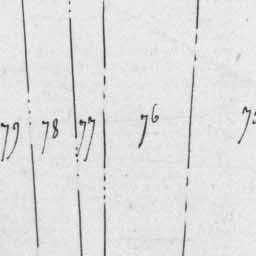 79 78 77 76